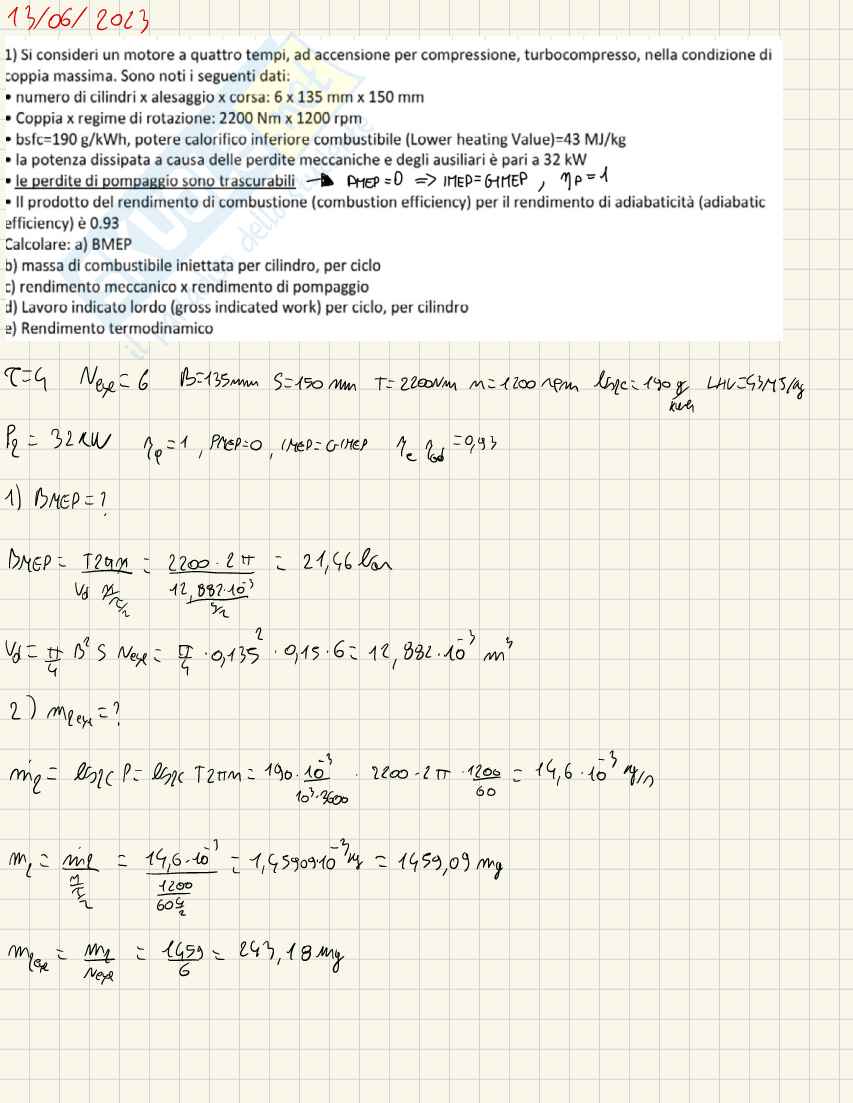 13/06/2023
1) Si consideri un motore a quattro tempi, ad accensione per compressione, turbocompresso, nella condizione di
coppia massima. Sono noti i seguenti dati:
• numero di cilindri x alesaggio x corsa: 6 x 135 mm x 150 mm
• Coppia x regime di rotazione: 2200 Nm x 1200 rpm
• bsfc=190 g/kWh, potere calorifico inferiore combustibile (Lower heating Value)=43 MJ/kg
• la potenza dissipata a causa delle perdite meccaniche e degli ausiliari è pari a 32 kW
• le perdite di pompaggio sono trascurabili → PMEP=0 => IMEP=GIMEP , ηp=1
• Il prodotto del rendimento di combustione (combustion efficiency) per il rendimento di adiabaticità (adiabatic
efficiency) è 0.93
Calcolare: a) BMEP
b) massa di combustibile iniettata per cilindro, per ciclo
c) rendimento meccanico x rendimento di pompaggio
d) Lavoro indicato lordo (gross indicated work) per ciclo, per cilindro
e) Rendimento termodinamico
τ=4 Ncyl=6 B=135mm S=150 mm T=2200Nm n=1200 rpm bsfc=190 g/kWh LHV=43MJ/kg
Pf = 32 kW ηp=1, PMEP=0, IMEP=GIMEP ηc ηad=0,93
1) BMEP=?
BMEP = T2πn / (Vd n/(τ/2)) = 2200·2π / (12,882·10^-3 / (4/2)) = 21,46 bar
Vd = π/4 B² S Ncyl = π/4 · 0,135² · 0,15 · 6 = 12,882·10^-3 m³
2) mfcyl=?
ṁf = bsfc P = bsfc T2πn = 190·10^-3 / (10³·3600) · 2200·2π · 1200/60 = 14,6·10^-3 kg/s
mf = ṁf / (n/(τ/2)) = 14,6·10^-3 / (1200/(60 4/2)) = 1,45909·10^-3 kg = 1459,09 mg
mfcyl = mf / Ncyl = 1459 / 6 = 243,18 mg